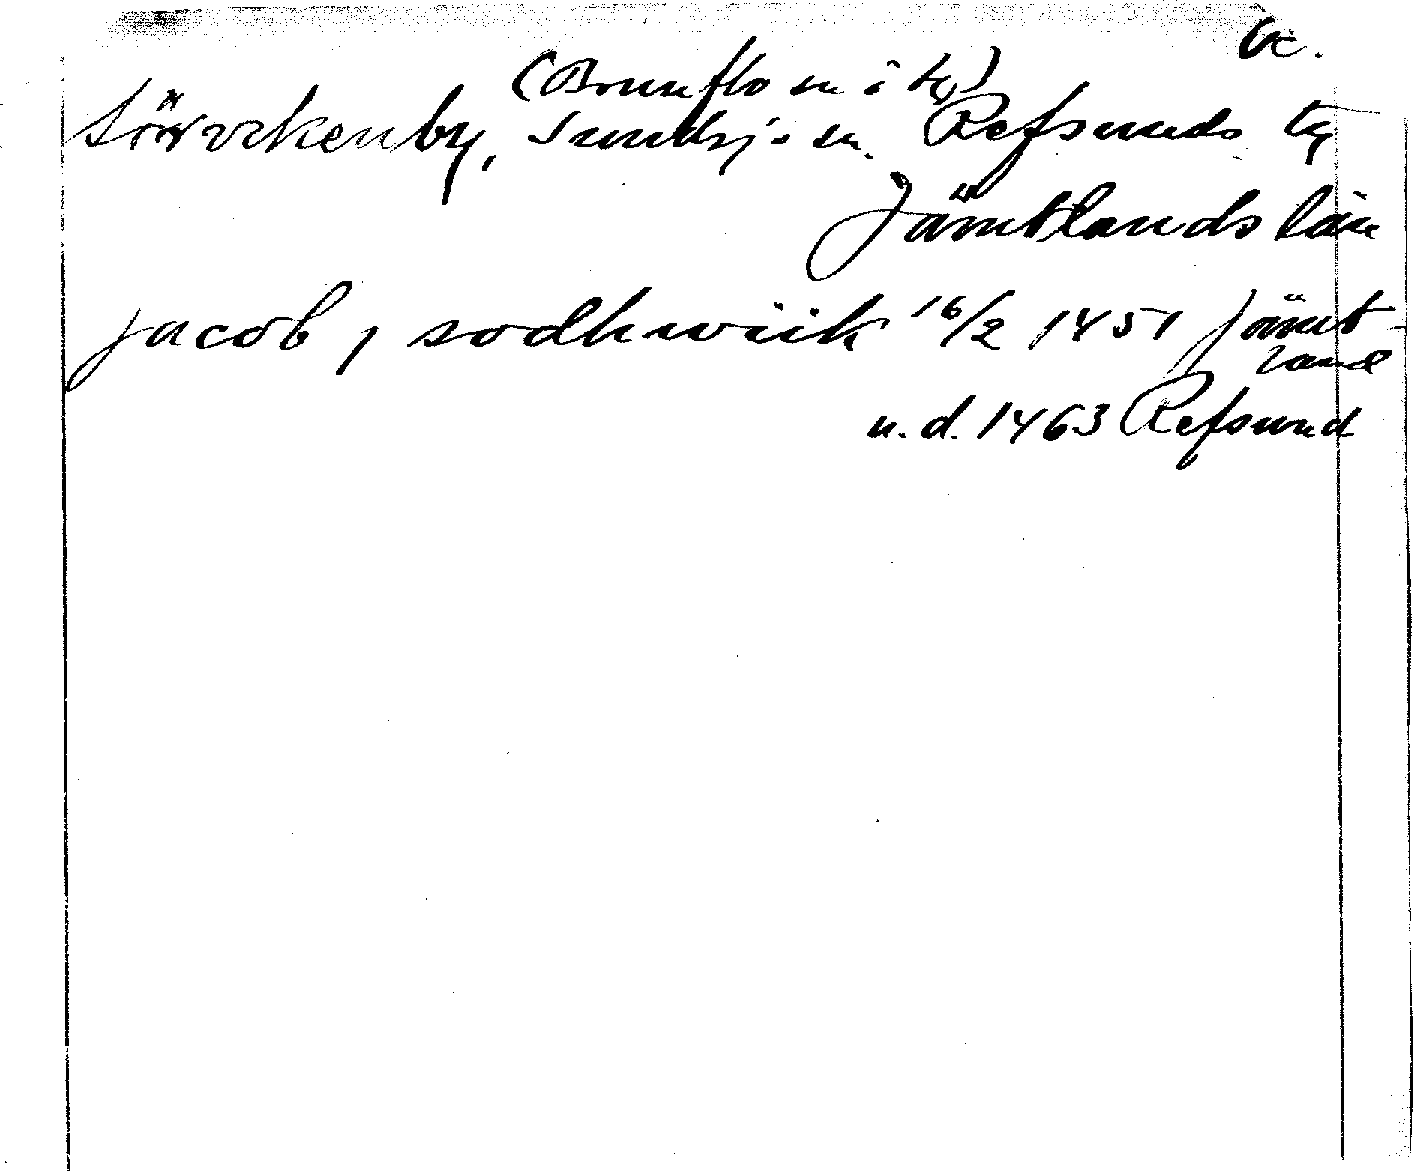 (Brunflo sn i ty)
Sörvikenby, Sundsjö sn. Refsunds tg
Jämtlands län
jacob j sodhwiik 16/2 1451 Jämt-
land
u.d. 1463 Refsund